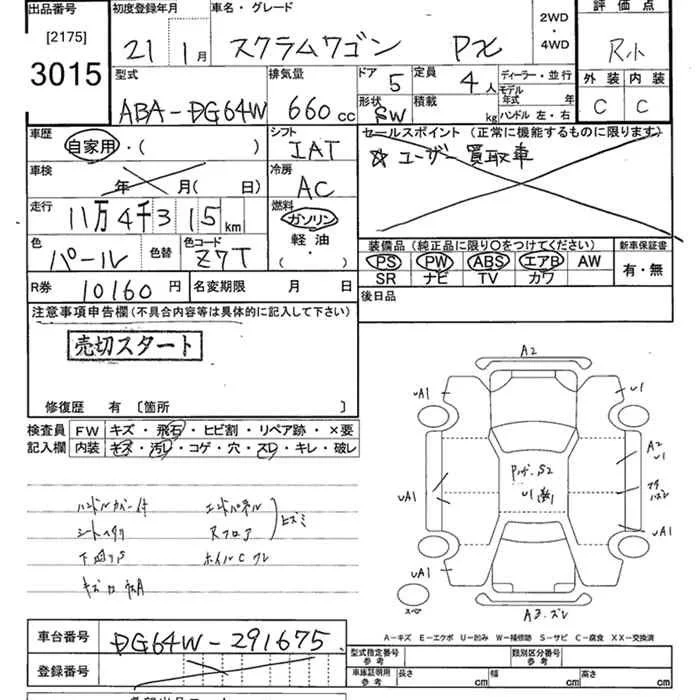 出品番号 初度登録年月 車名・グレード 評価点
[2175] 2WD
3015 21 1月 スクラムワゴン PX ・ R小
4WD
型式 排気量 ドア 5 定員 4人 ディーラー・並行 外装 内装
ABA-DG64W 660cc 形状 SW 積載 kg モデル年式 年 C C
ハンドル左・右
車歴 シフト セールスポイント(正常に機能するものに限ります)
自家用・( ) IAT ☆ユーザー買取車
車検 冷房
年 月(日) AC
走行 燃料
11万4千315km ガソリン
色 色替 色コード 軽油 装備品(純正品に限り○をつけてください) 新車保証書
パール Z7T ・( ) PS PW ABS エアB AW 有・無
SR ナビ TV カワ
R券 10160円 名変期限 月 日 後日品
注意事項申告欄(不具合内容等は具体的に記入して下さい)
売切スタート
修復歴 有 〔箇所 〕
検査員 FW キズ・飛石・ヒビ割・リペア跡・×要
記入欄 内装 キズ・汚レ・コゲ・穴・スレ・キレ・破レ
A2
UA1 U1
A2
U1
UA1
UA1
UA1 A1
スペア
A3.ズレ
ハンドルカバー付 エンドパネル
シートヘタリ Rフロア ヒズミ
ホイルCワレ
A-キズ E-エクボ U-凹み W-補修跡 S-サビ C-腐食 XX-交換済
車台番号 DG64W-291675
登録番号
型式指定番号 参考 類別区分番号 参考
車庫証明用 参考 長さ cm 幅 cm 高さ cm